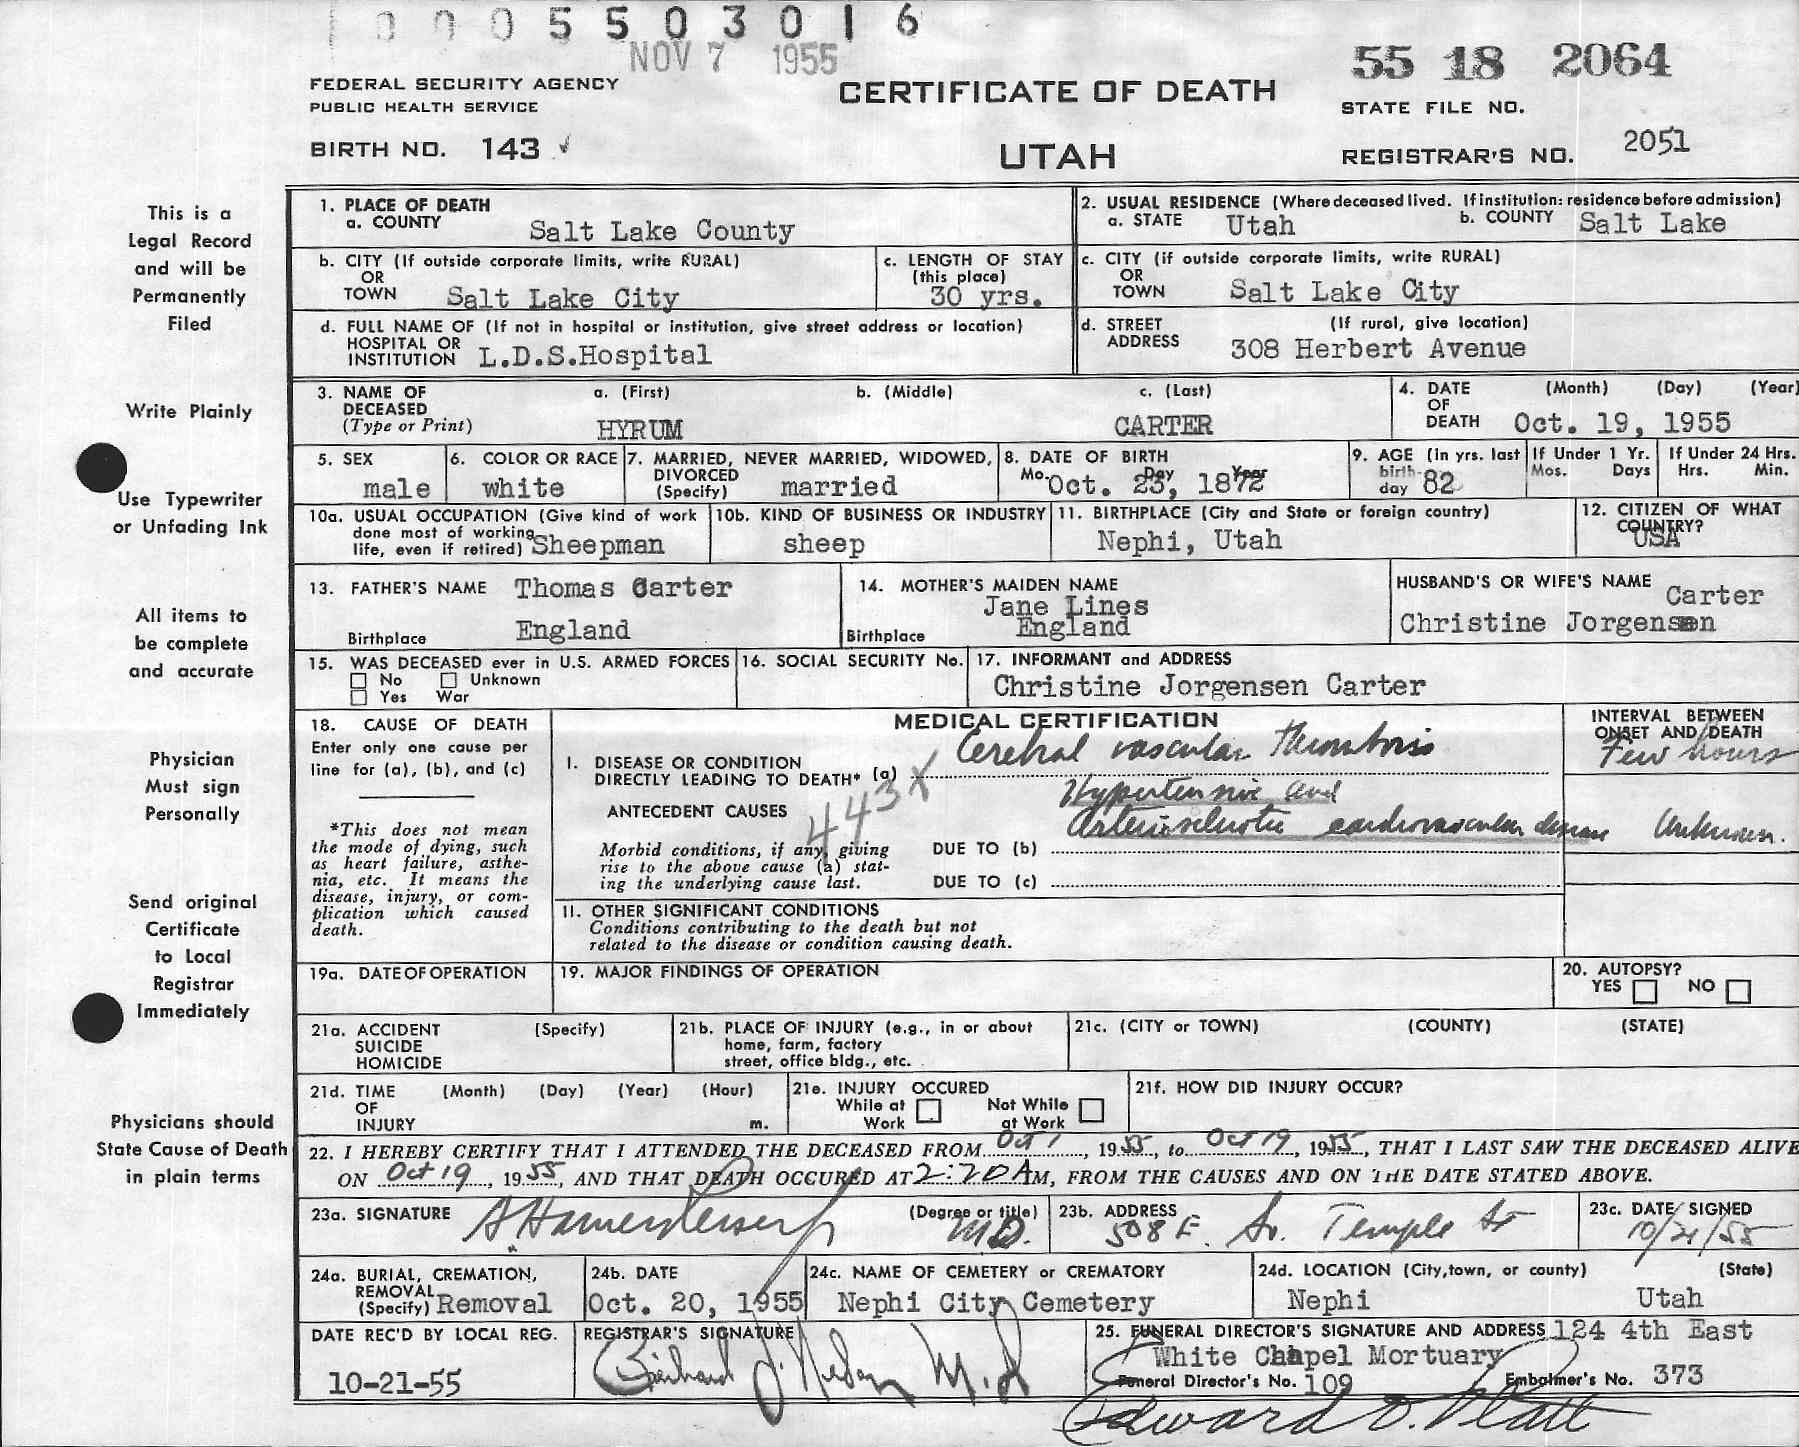 0005503016
NOV 7 1955
55 18 2064
FEDERAL SECURITY AGENCY
PUBLIC HEALTH SERVICE
CERTIFICATE OF DEATH
STATE FILE NO.
BIRTH NO. 143
UTAH
REGISTRAR'S NO. 2051
This is a
Legal Record
and will be
Permanently
Filed
Write Plainly
Use Typewriter
or Unfading Ink
All items to
be complete
and accurate
Physician
Must sign
Personally
Send original
Certificate
to Local
Registrar
Immediately
Physicians should
State Cause of Death
in plain terms
1. PLACE OF DEATH
a. COUNTY Salt Lake County
2. USUAL RESIDENCE (Where deceased lived. If institution: residence before admission)
a. STATE Utah b. COUNTY Salt Lake
b. CITY (If outside corporate limits, write RURAL)
OR
TOWN Salt Lake City
c. LENGTH OF STAY
(this place)
30 yrs.
c. CITY (if outside corporate limits, write RURAL)
OR
TOWN Salt Lake City
d. FULL NAME OF (If not in hospital or institution, give street address or location)
HOSPITAL OR
INSTITUTION L.D.S.Hospital
d. STREET (If rural, give location)
ADDRESS 308 Herbert Avenue
3. NAME OF a. (First) b. (Middle) c. (Last)
DECEASED
(Type or Print) HYRUM CARTER
4. DATE (Month) (Day) (Year)
OF
DEATH Oct. 19, 1955
5. SEX
male
6. COLOR OR RACE
white
7. MARRIED, NEVER MARRIED, WIDOWED,
DIVORCED
(Specify) married
8. DATE OF BIRTH
Mo. Day Year
Oct. 23, 1872
9. AGE (In yrs. last
birth-
day 82
If Under 1 Yr.
Mos. Days
If Under 24 Hrs.
Hrs. Min.
10a. USUAL OCCUPATION (Give kind of work
done most of working
life, even if retired) Sheepman
10b. KIND OF BUSINESS OR INDUSTRY
sheep
11. BIRTHPLACE (City and State or foreign country)
Nephi, Utah
12. CITIZEN OF WHAT
COUNTRY?
USA
13. FATHER'S NAME Thomas Carter
Birthplace England
14. MOTHER'S MAIDEN NAME
Jane Lines
Birthplace England
HUSBAND'S OR WIFE'S NAME Carter
Christine Jorgensen
15. WAS DECEASED ever in U.S. ARMED FORCES
No Unknown
Yes War
16. SOCIAL SECURITY No.
17. INFORMANT and ADDRESS
Christine Jorgensen Carter
18. CAUSE OF DEATH
Enter only one cause per
line for (a), (b), and (c)
*This does not mean
the mode of dying, such
as heart failure, asthe-
nia, etc. It means the
disease, injury, or com-
plication which caused
death.
MEDICAL CERTIFICATION
INTERVAL BETWEEN
ONSET AND DEATH
I. DISEASE OR CONDITION
DIRECTLY LEADING TO DEATH* (a) Cerebral vascular Thrombosis Few hours
443X
ANTECEDENT CAUSES
Hypertensive and
Arteriosclerotic cardiovascular disease Unknown.
Morbid conditions, if any, giving
rise to the above cause (a) stat-
ing the underlying cause last.
DUE TO (b)
DUE TO (c)
II. OTHER SIGNIFICANT CONDITIONS
Conditions contributing to the death but not
related to the disease or condition causing death.
19a. DATE OF OPERATION
19. MAJOR FINDINGS OF OPERATION
20. AUTOPSY?
YES NO
21a. ACCIDENT (Specify)
SUICIDE
HOMICIDE
21b. PLACE OF INJURY (e.g., in or about
home, farm, factory
street, office bldg., etc.
21c. (CITY or TOWN) (COUNTY) (STATE)
21d. TIME (Month) (Day) (Year) (Hour)
OF
INJURY m.
21e. INJURY OCCURED
While at Work Not While at Work
21f. HOW DID INJURY OCCUR?
22. I HEREBY CERTIFY THAT I ATTENDED THE DECEASED FROM Oct 1, 1955, to Oct 19, 1955, THAT I LAST SAW THE DECEASED ALIVE
ON Oct 19, 1955, AND THAT DEATH OCCURED AT 2:20 AM, FROM THE CAUSES AND ON THE DATE STATED ABOVE.
23a. SIGNATURE (Degree or title)
M.D.
23b. ADDRESS
508 E. So. Temple St
23c. DATE SIGNED
10/21/55
24a. BURIAL, CREMATION,
REMOVAL
(Specify) Removal
24b. DATE
Oct. 20, 1955
24c. NAME OF CEMETERY or CREMATORY
Nephi City Cemetery
24d. LOCATION (City, town, or county) (State)
Nephi Utah
DATE REC'D BY LOCAL REG.
10-21-55
REGISTRAR'S SIGNATURE
M.D
25. FUNERAL DIRECTOR'S SIGNATURE AND ADDRESS 124 4th East
White Chapel Mortuary
Funeral Director's No. 109 Embalmer's No. 373
Edward D. Platt